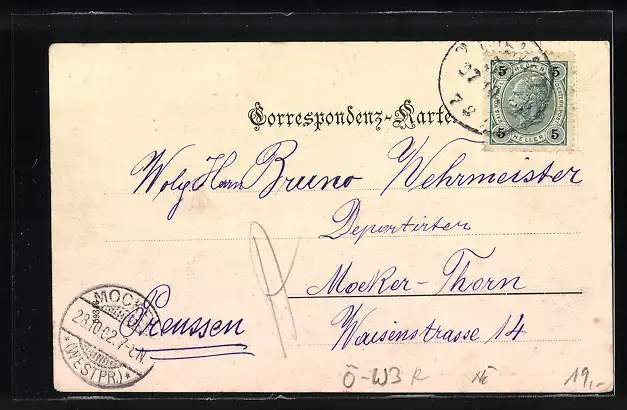 5 5
HELLER
5 5
Correspondenz-Karte.
Wolg. Herrn Bruno Wehrmeister
Deportirter
Mocker-Thorn
Preussen
Waisenstrasse 14
MOCKER
28.10.02. 7-8 N.
*(WESTPR.)*
Ö-W3 R
19,-